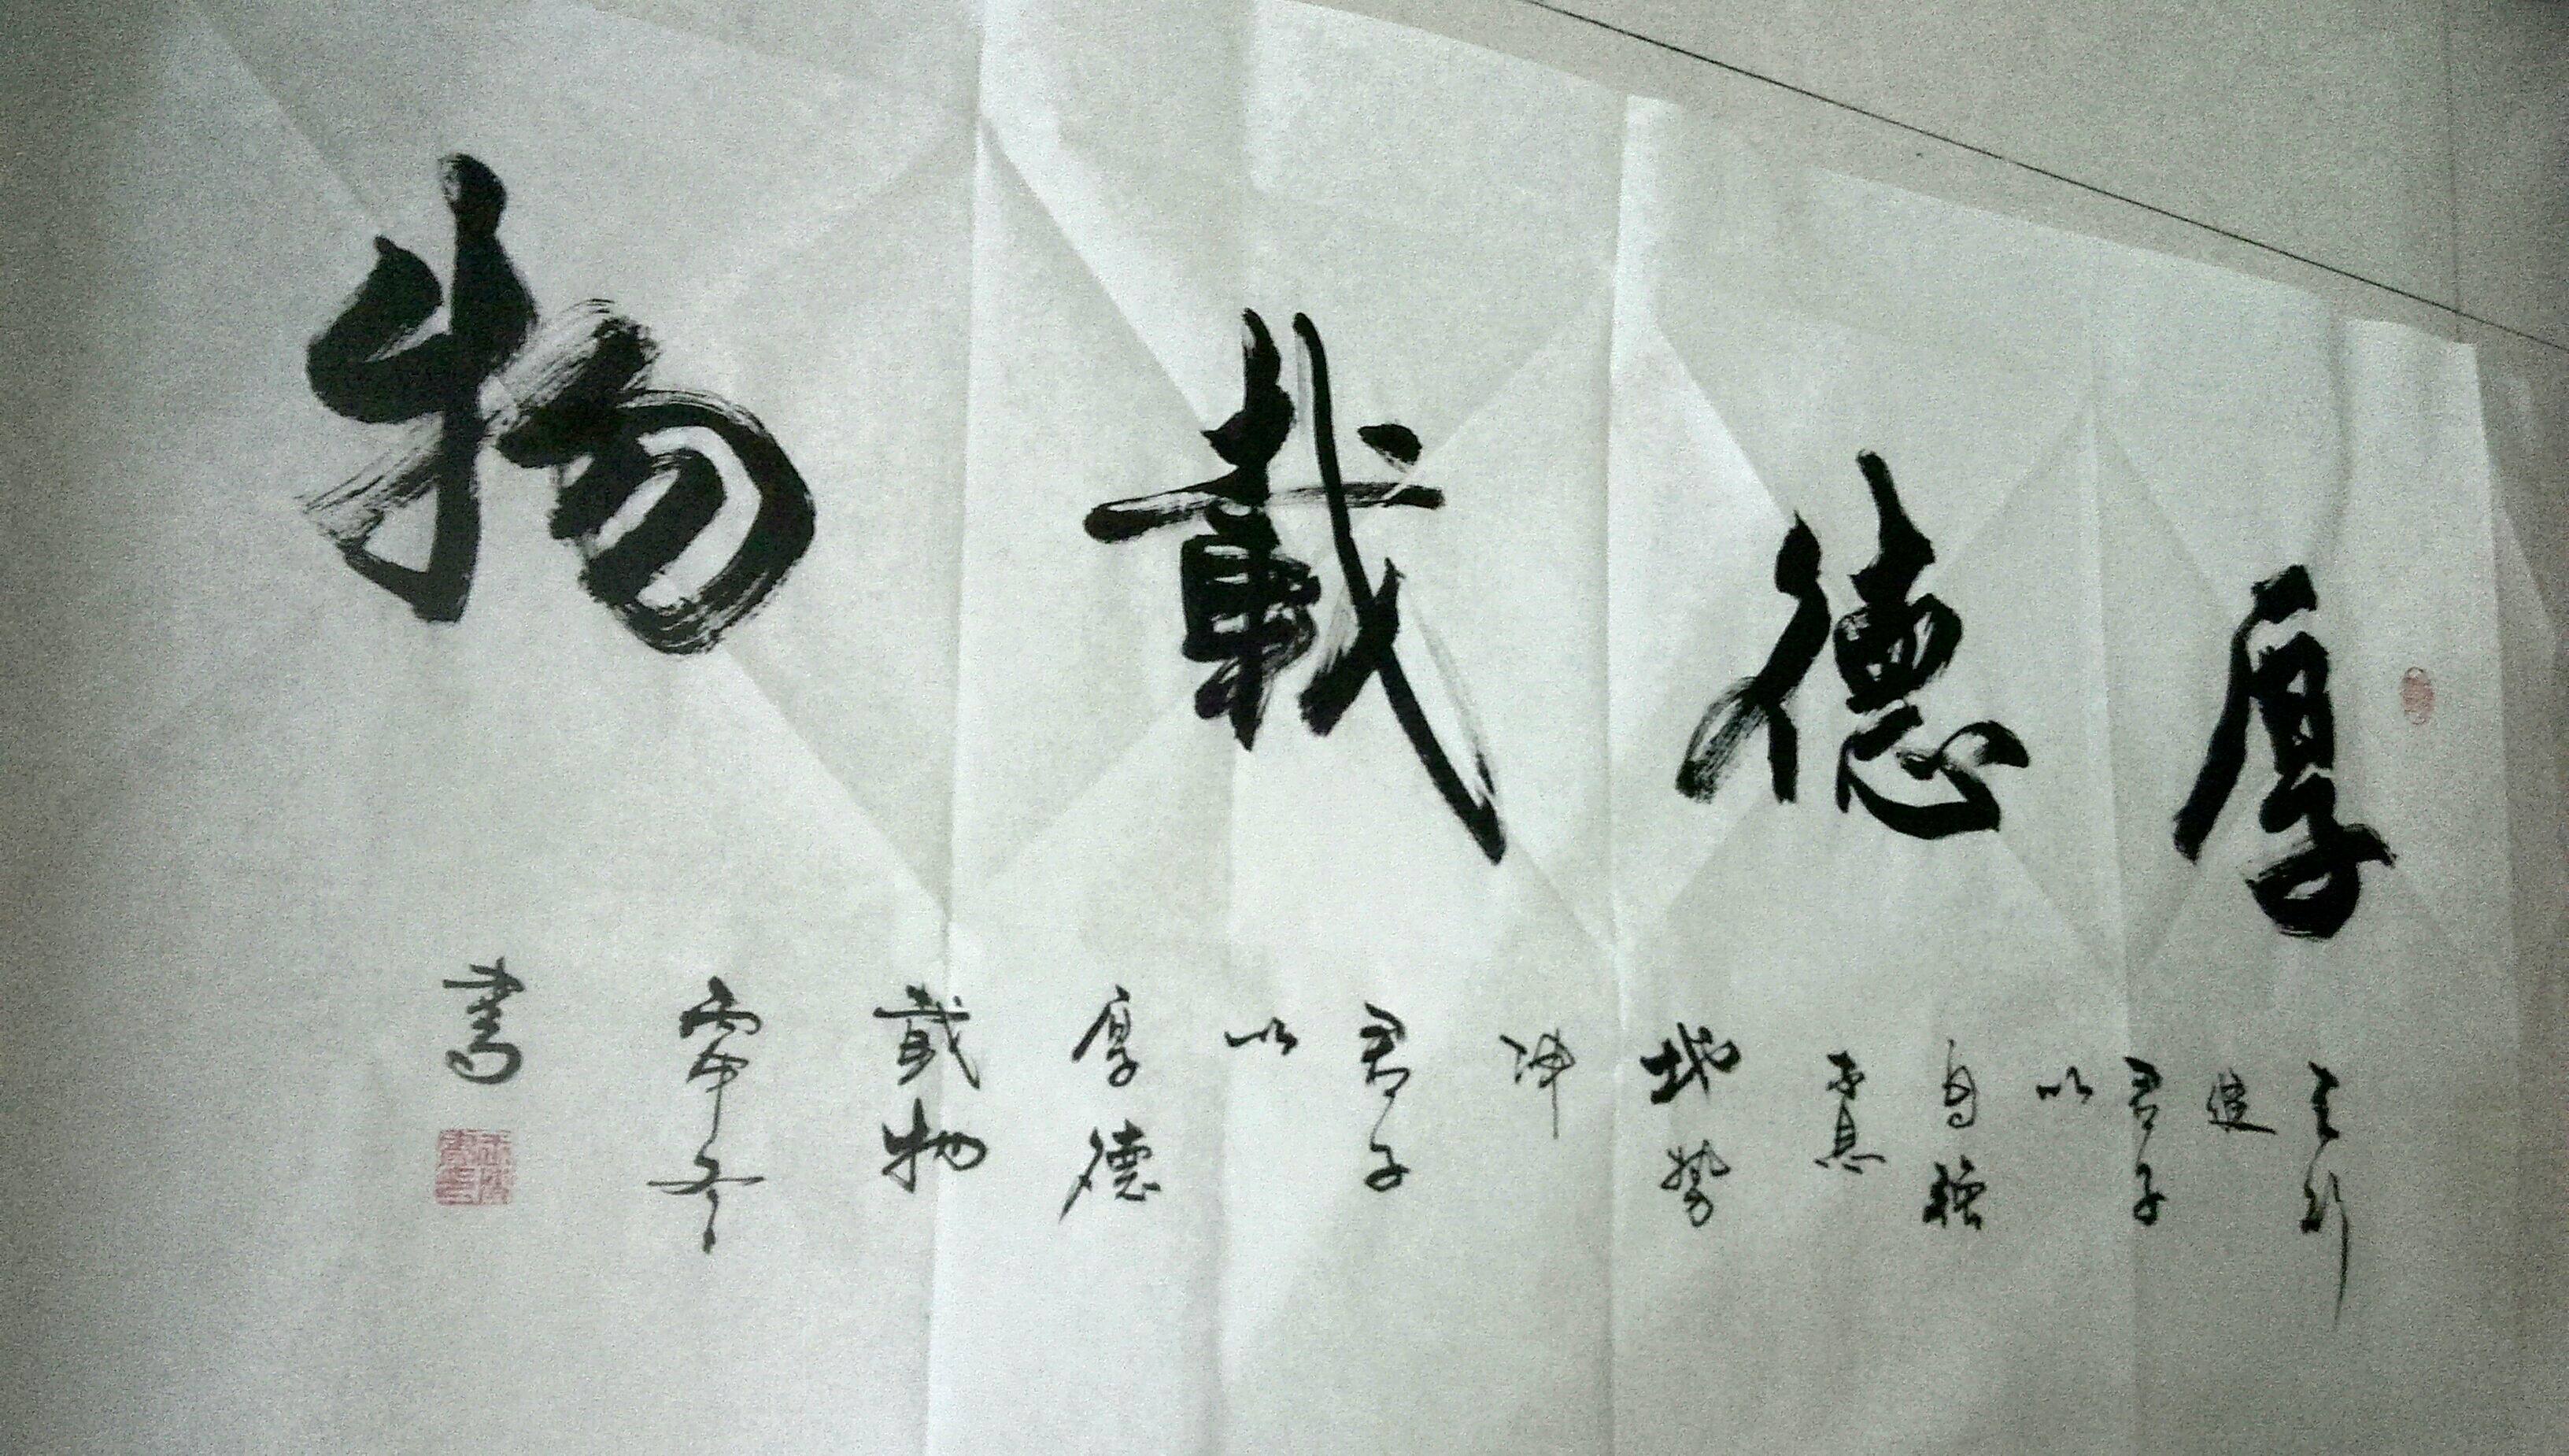 厚德載物
天行
健
君子
以
自強
不息
地勢
坤
君子
以
厚德
載物
丙申冬
書